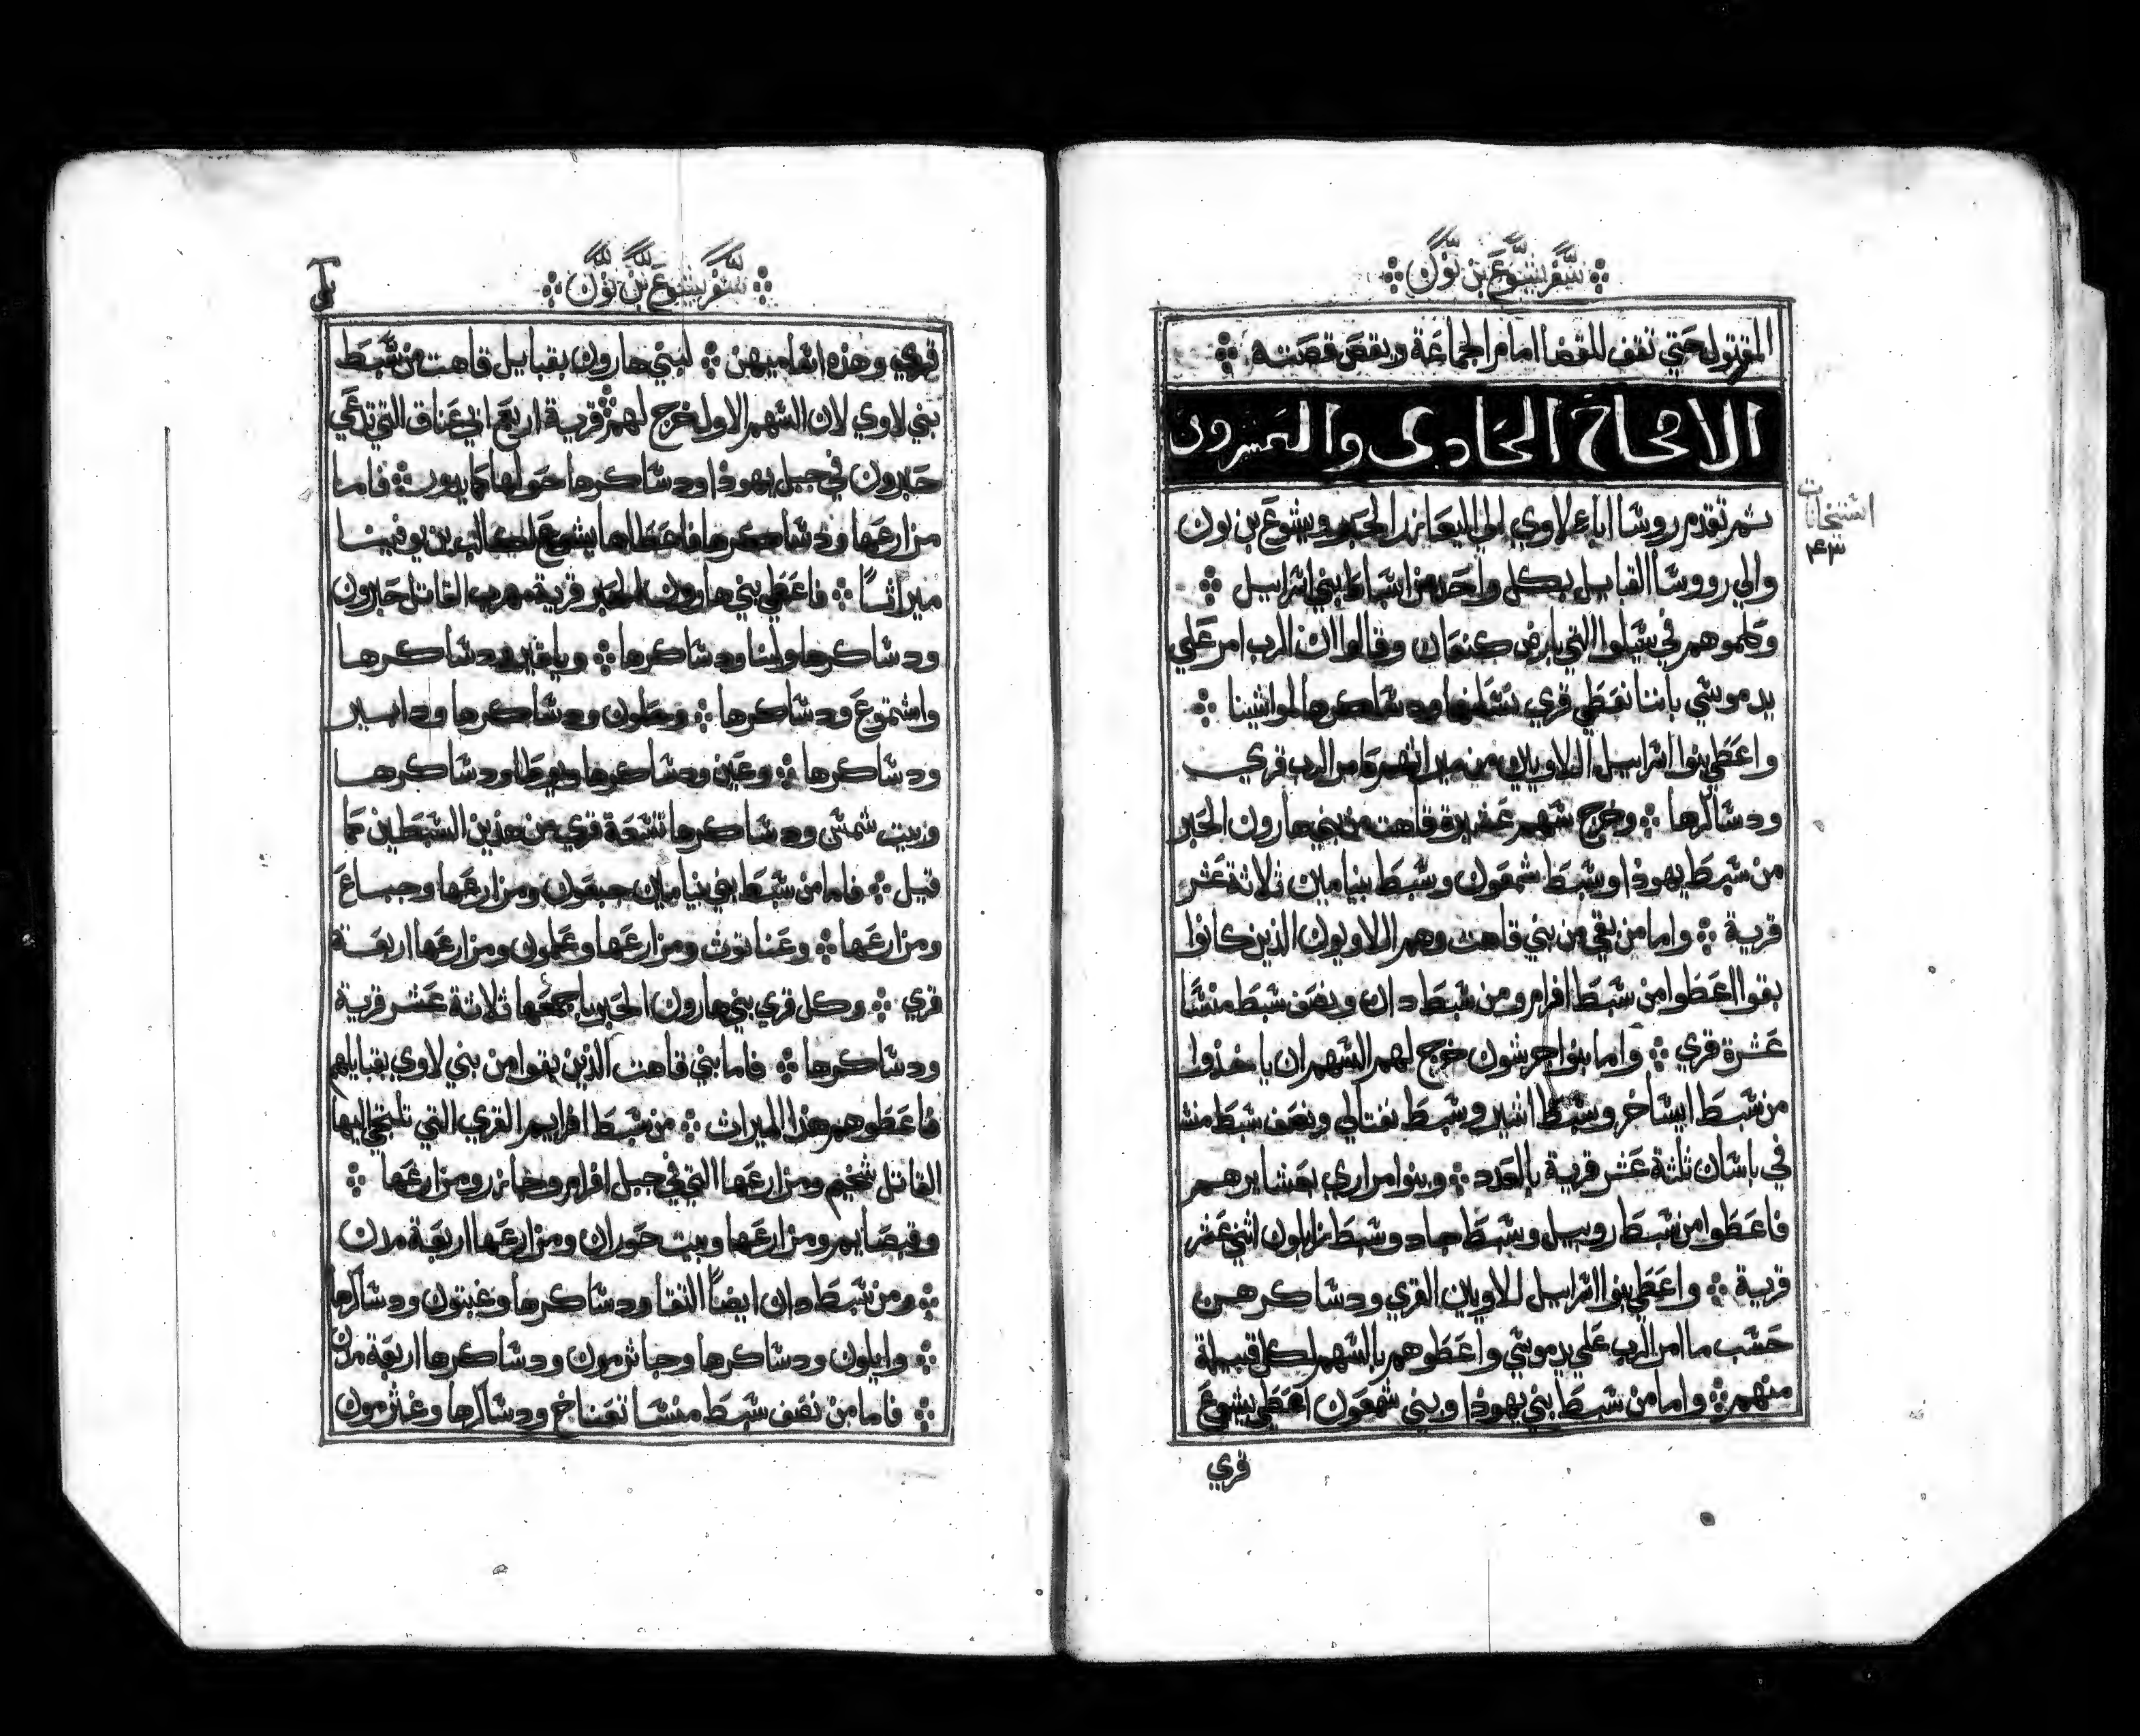 سفر يشوع بن نون
المقتول حتي تقف للقضا امام الجماعة ويقص قصته
الاصحاح الحادي والعشرون
ثم تقدم رووشا اباء لاوي الي اليعازر الحبر ويشوع بن نون
والي رووشا القبايل بكل واحد من اشباط بني اشراييل
وكلموهم في شيلوا التي بارض كنعان وقالوا ان الرب امر علي
يد موشي باننا نعطي قري نشكنها ودشاكرها لمواشينا
واعطي بنوا اشراييل اللاويين من ميراثهم كامر الرب قري
ودشاكرها وخرج شهم عشيرة قاهت من بني هارون الحبر
من شبط يهوذا وشبط شمعون وشبط بنيامين ثلاثة عشر
قرية واما من بقي من بني قاهت وهم اللاويون الذين كانوا
بقوا اعطوا من شبط افرام ومن شبط دان ونصف شبط منشا
عشرة قري واما بنوا جرشون خرج لهم الشهم ان ياخذوا
من شبط ايشاخر وشبط اشير وشبط نفتالي ونصف شبط منشا
في باشان ثلثة عشر قرية بالعدد وبنوا مراري بعشايرهم
فاعطوا من شبط روبيل وشبط جاد وشبط زابلون اثني عشر
قرية واعطي بنوا اشراييل للاويين القري ودشاكرهن
حشب ما امر الرب علي يد موشي واعطوهم بالشهم لكل قبيلة
منهم واما من شبط بني يهوذا وبني شمعون اعطي يشوع
قري
اشتخانات
سفر يشوع بن نون
قري وهذه اشاميهن لبني هارون بقبايل قاهت من شبط
بني لاوي لان الشهم الاول خرج لهم قرية اربع ابي عناق التي تدعي
حبرون في جبل يهوذا ودشاكرها حولها كما يدور فاما
مزارعها ودشاكرها فاعطاها يشوع لكالب بن يوفينا
ميراثا فاعطي بني هارون الحبر قرية مهرب القاتل حبرون
ودشاكرها ولبنا ودشاكرها وياثير ودشاكرها
واشتموع ودشاكرها وحلون ودشاكرها ودابير
ودشاكرها وعين ودشاكرها ويوطا ودشاكرها
وبيت شمش ودشاكرها تشعة قري من هذين الشبطين كما
قيل فاما من شبط بني بنيامين جبعون ومزارعها وجباع
ومزارعها وعناتوث ومزارعها وعلمون ومزارعها اربعة
قري وكل قري بني هارون الحبر باجمعها ثلاثة عشر قرية
ودشاكرها فاما بني قاهت الذين بقوا من بني لاوي بقبايلهم
فاعطوهم هذا الميراث من شبط افرايم القري التي تلتجي اليها
القاتل شخيم ومزارعها التي في جبل افرام وجازر ومزارعها
وقبصايم ومزارعها وبيت حوران ومزارعها اربعة مدن
ومن شبط دان ايضا التقا ودشاكرها وغبتون ودشاكرها
وايلون ودشاكرها وجاثرمون ودشاكرها اربعة مدن
فاما من نصف شبط منشا تعناخ ودشاكرها وغثرمون